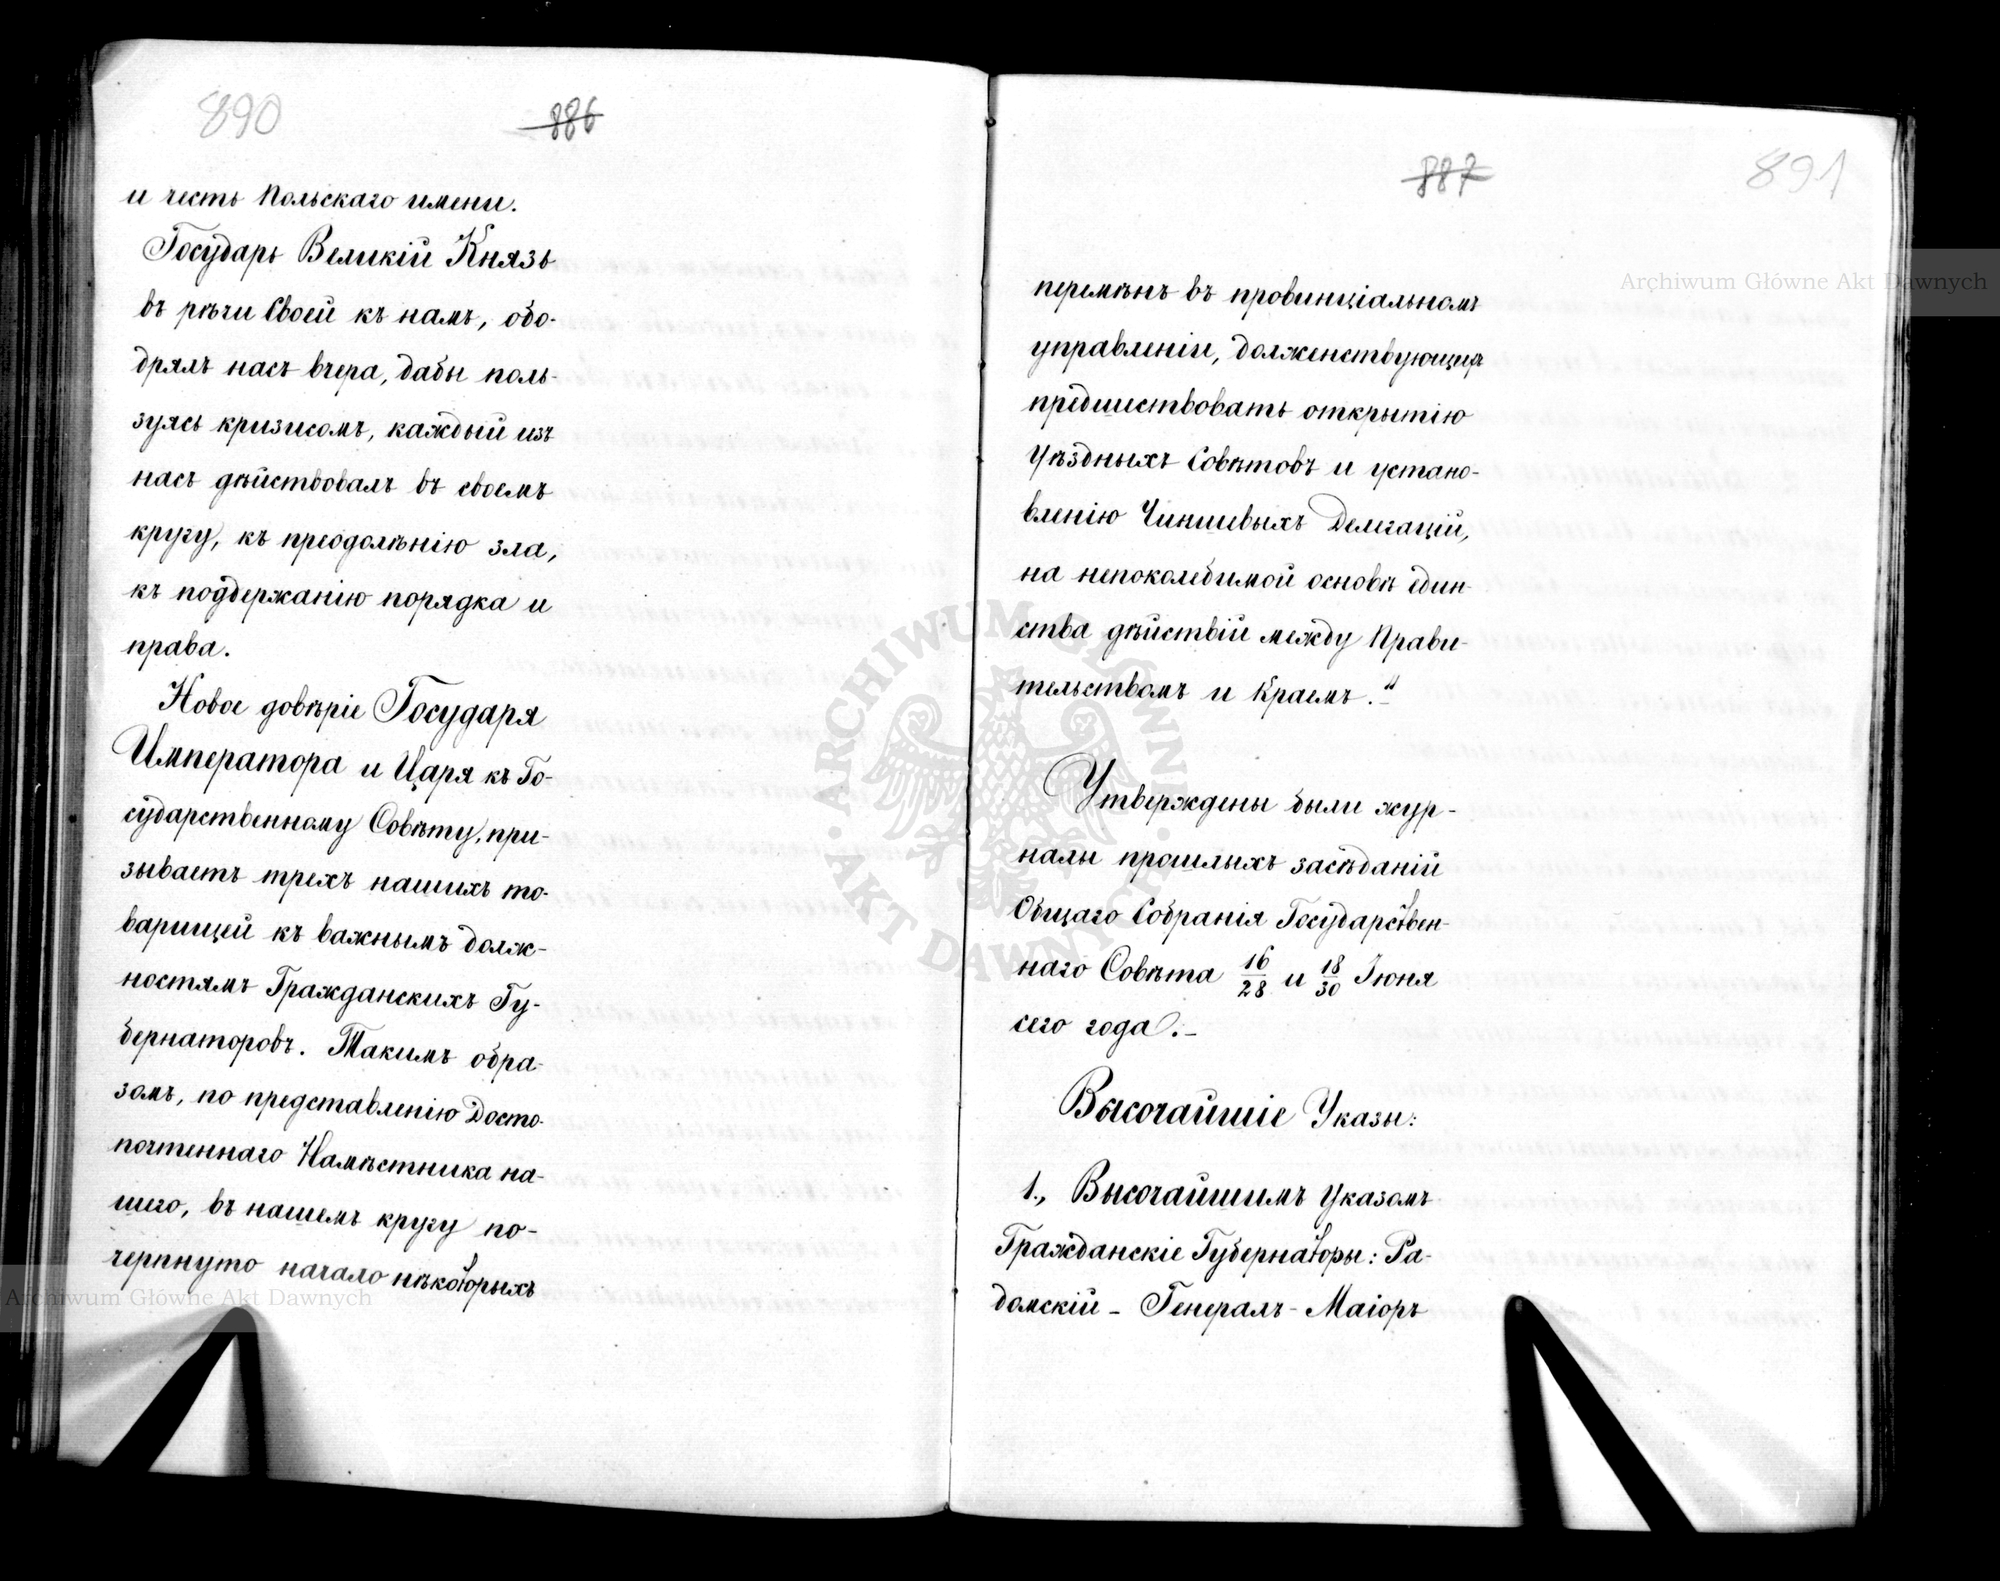 890
886
и честь Польскаго имени.
Государь Великій Князь
въ рѣчи Своей къ намъ, обо-
дрялъ насъ вчера, дабы поль-
зуясь кризисомъ, каждый изъ
насъ дѣйствовалъ въ своемъ
кругу, къ преодолѣнію зла,
къ поддержанію порядка и
права.
Новое довѣріе Государя
Императора и Царя къ Го-
сударственному Совѣту, при-
зываетъ трехъ нашихъ то-
варищей къ важнымъ долж-
ностямъ Гражданскихъ Гу-
бернаторовъ. Такимъ обра-
зомъ, по представленію Досто-
почтеннаго Намѣстника на-
шего, въ нашемъ кругу по-
черпнуто начало нѣкоторыхъ
887
891
перемѣнъ въ провинціальномъ
управленіи, долженствующихъ
предшествовать открытію
Уѣздныхъ Совѣтовъ и устано-
вленію Чиншевыхъ Делегацій,
на непоколебимой основѣ един-
ства дѣйствій между Прави-
тельствомъ и Краемъ."
Утверждены были жур-
налы прошлыхъ засѣданій
Общаго Собранія Государствен-
наго Совѣта 16/28 и 18/30 Іюня
сего года.-
Высочайшіе Указы:
1., Высочайшимъ Указомъ
Гражданскіе Губернаторы: Ра-
домскій - Генералъ-Маіоръ
Archiwum Główne Akt Dawnych
ARCHIWUM GŁÓWNE · AKT DAWNYCH ·
Archiwum Główne Akt Dawnych